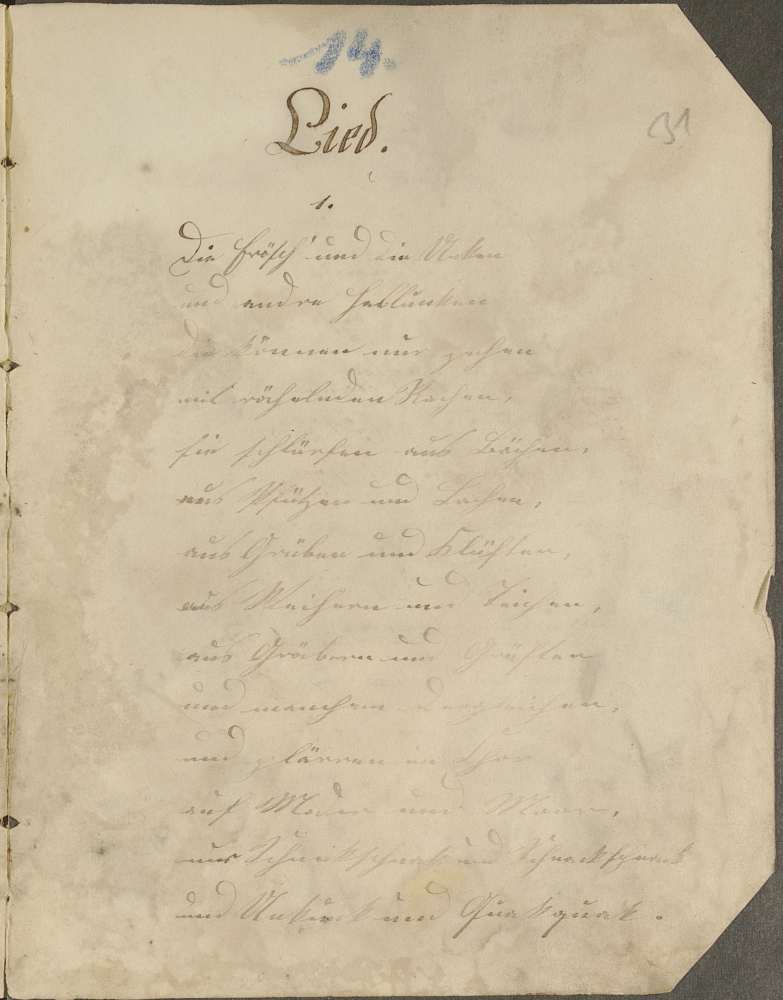 14.
Lied.
91
1.
Die Frösch' und die Unken
und andre Hallunken
die können nur zechen
mit röchelnden Rachen,
sie schlürfen aus Bächen,
aus Pfützen und Lachen,
aus Gruben und Klüften,
aus Weihern und Teichen,
aus Gräbern und Grüften
und manchem dergleichen,
und plärren im Chor
auf Moder und Moor,
nur Schnickschnack und Schnackschnack
und Unkunk und Quakquak.